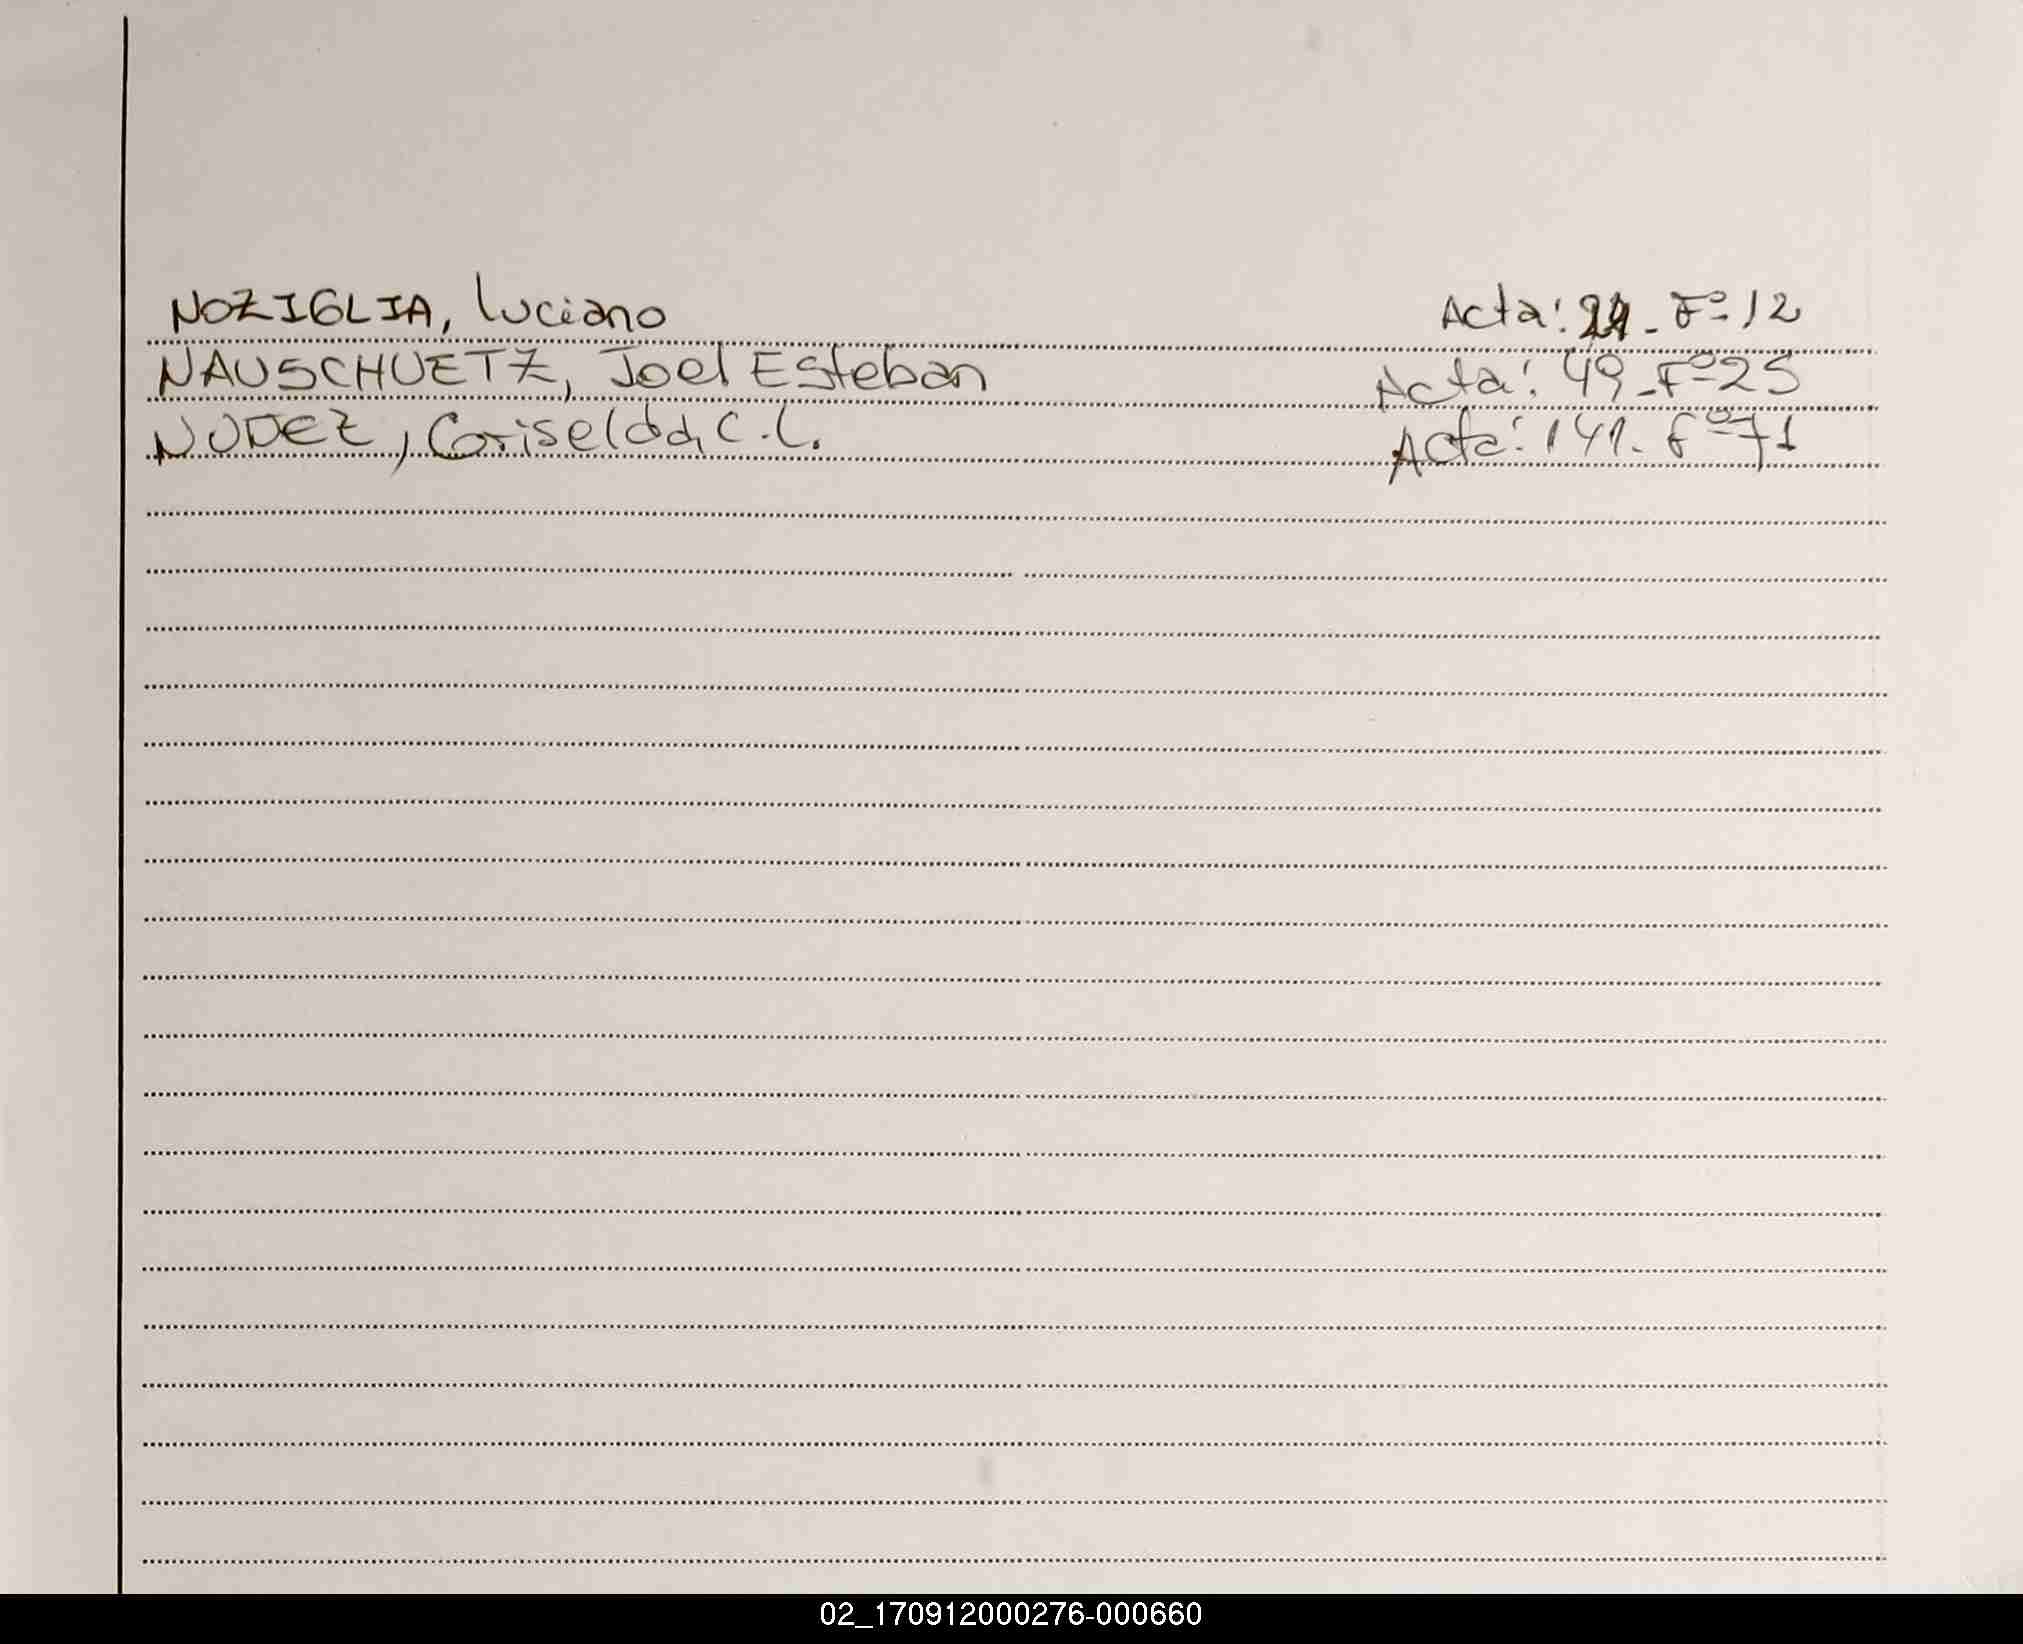 NOZIGLIA, Luciano Acta: 24 - Fº 12
NAUSCHUETZ, Joel Esteban Acta: 49 - Fº 25
NUDEZ, Griselda, C. L. Acta: 141 - Fº 71
02_170912000276-000660